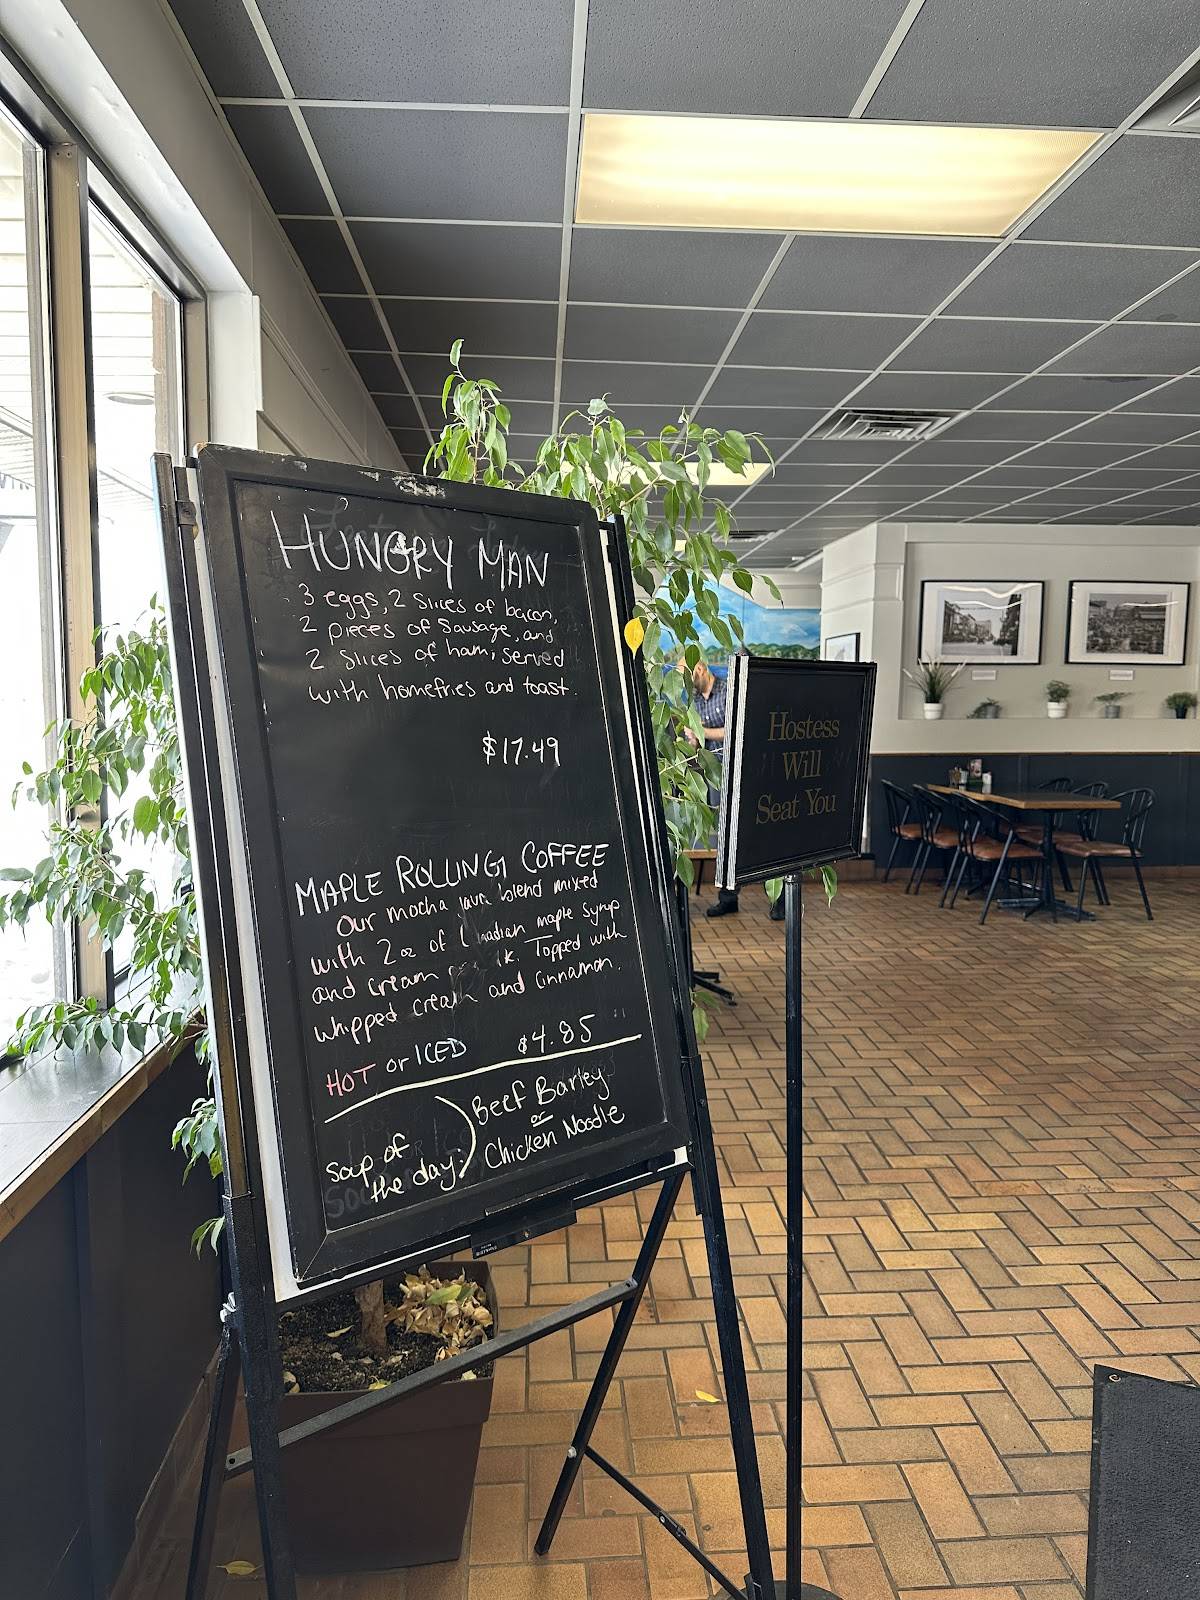 HUNGRY MAN
3 eggs, 2 slices of bacon,
2 pieces of sausage, and
2 slices of ham, served
with homefries and toast.
$17.49
MAPLE ROLLING COFFEE
Our mocha java blend mixed
with 2oz of Canadian maple syrup
and cream Topped with
whipped cream and Cinnamon.
HOT or ICED $4.85
Soup of
the day:
Beef Barley
or
Chicken Noodle
Hostess
Will
Seat You